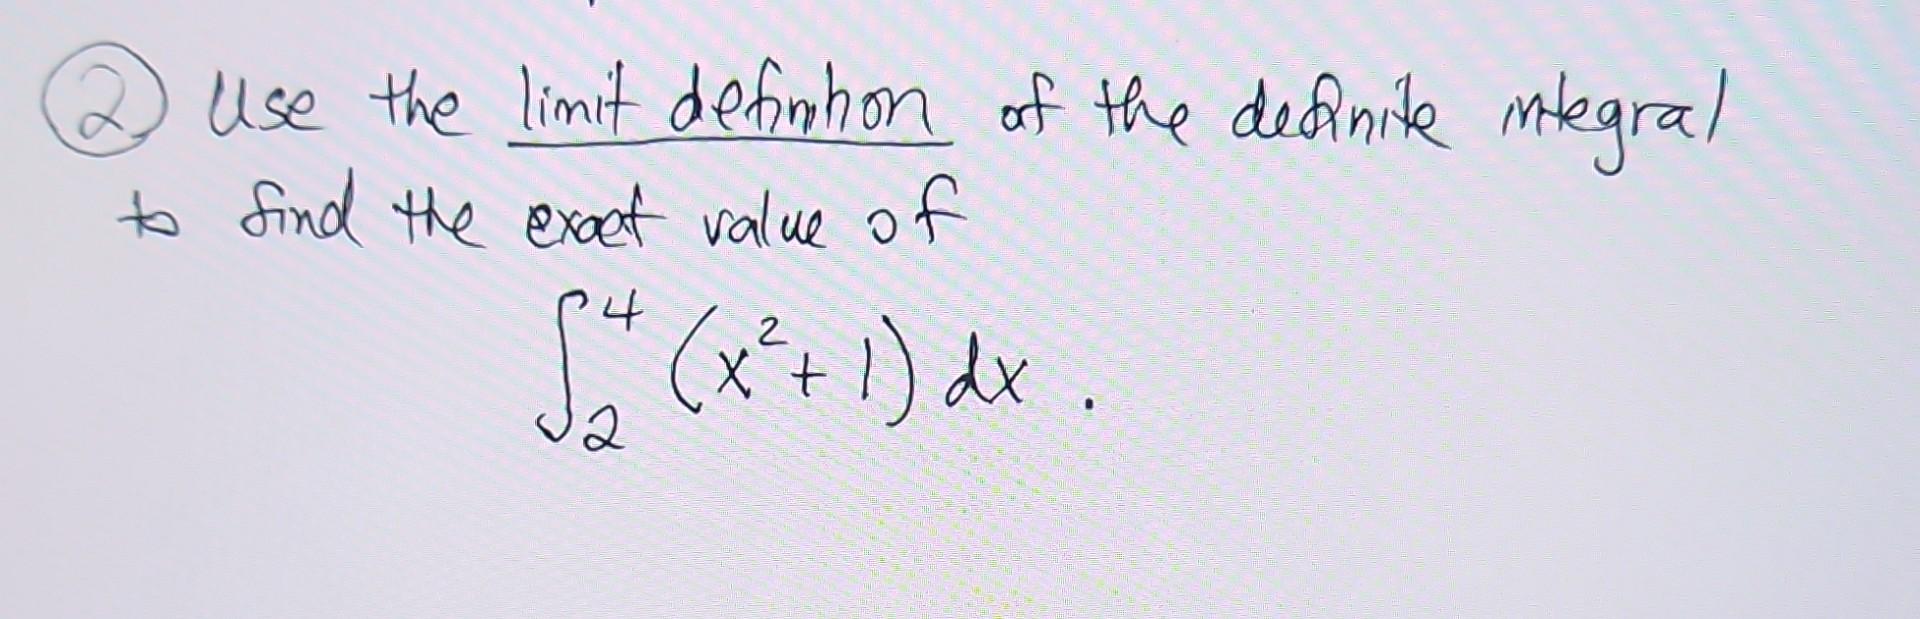 ② Use the limit definition of the definite integral
to find the exact value of
∫₂⁴ (x²+1) dx .